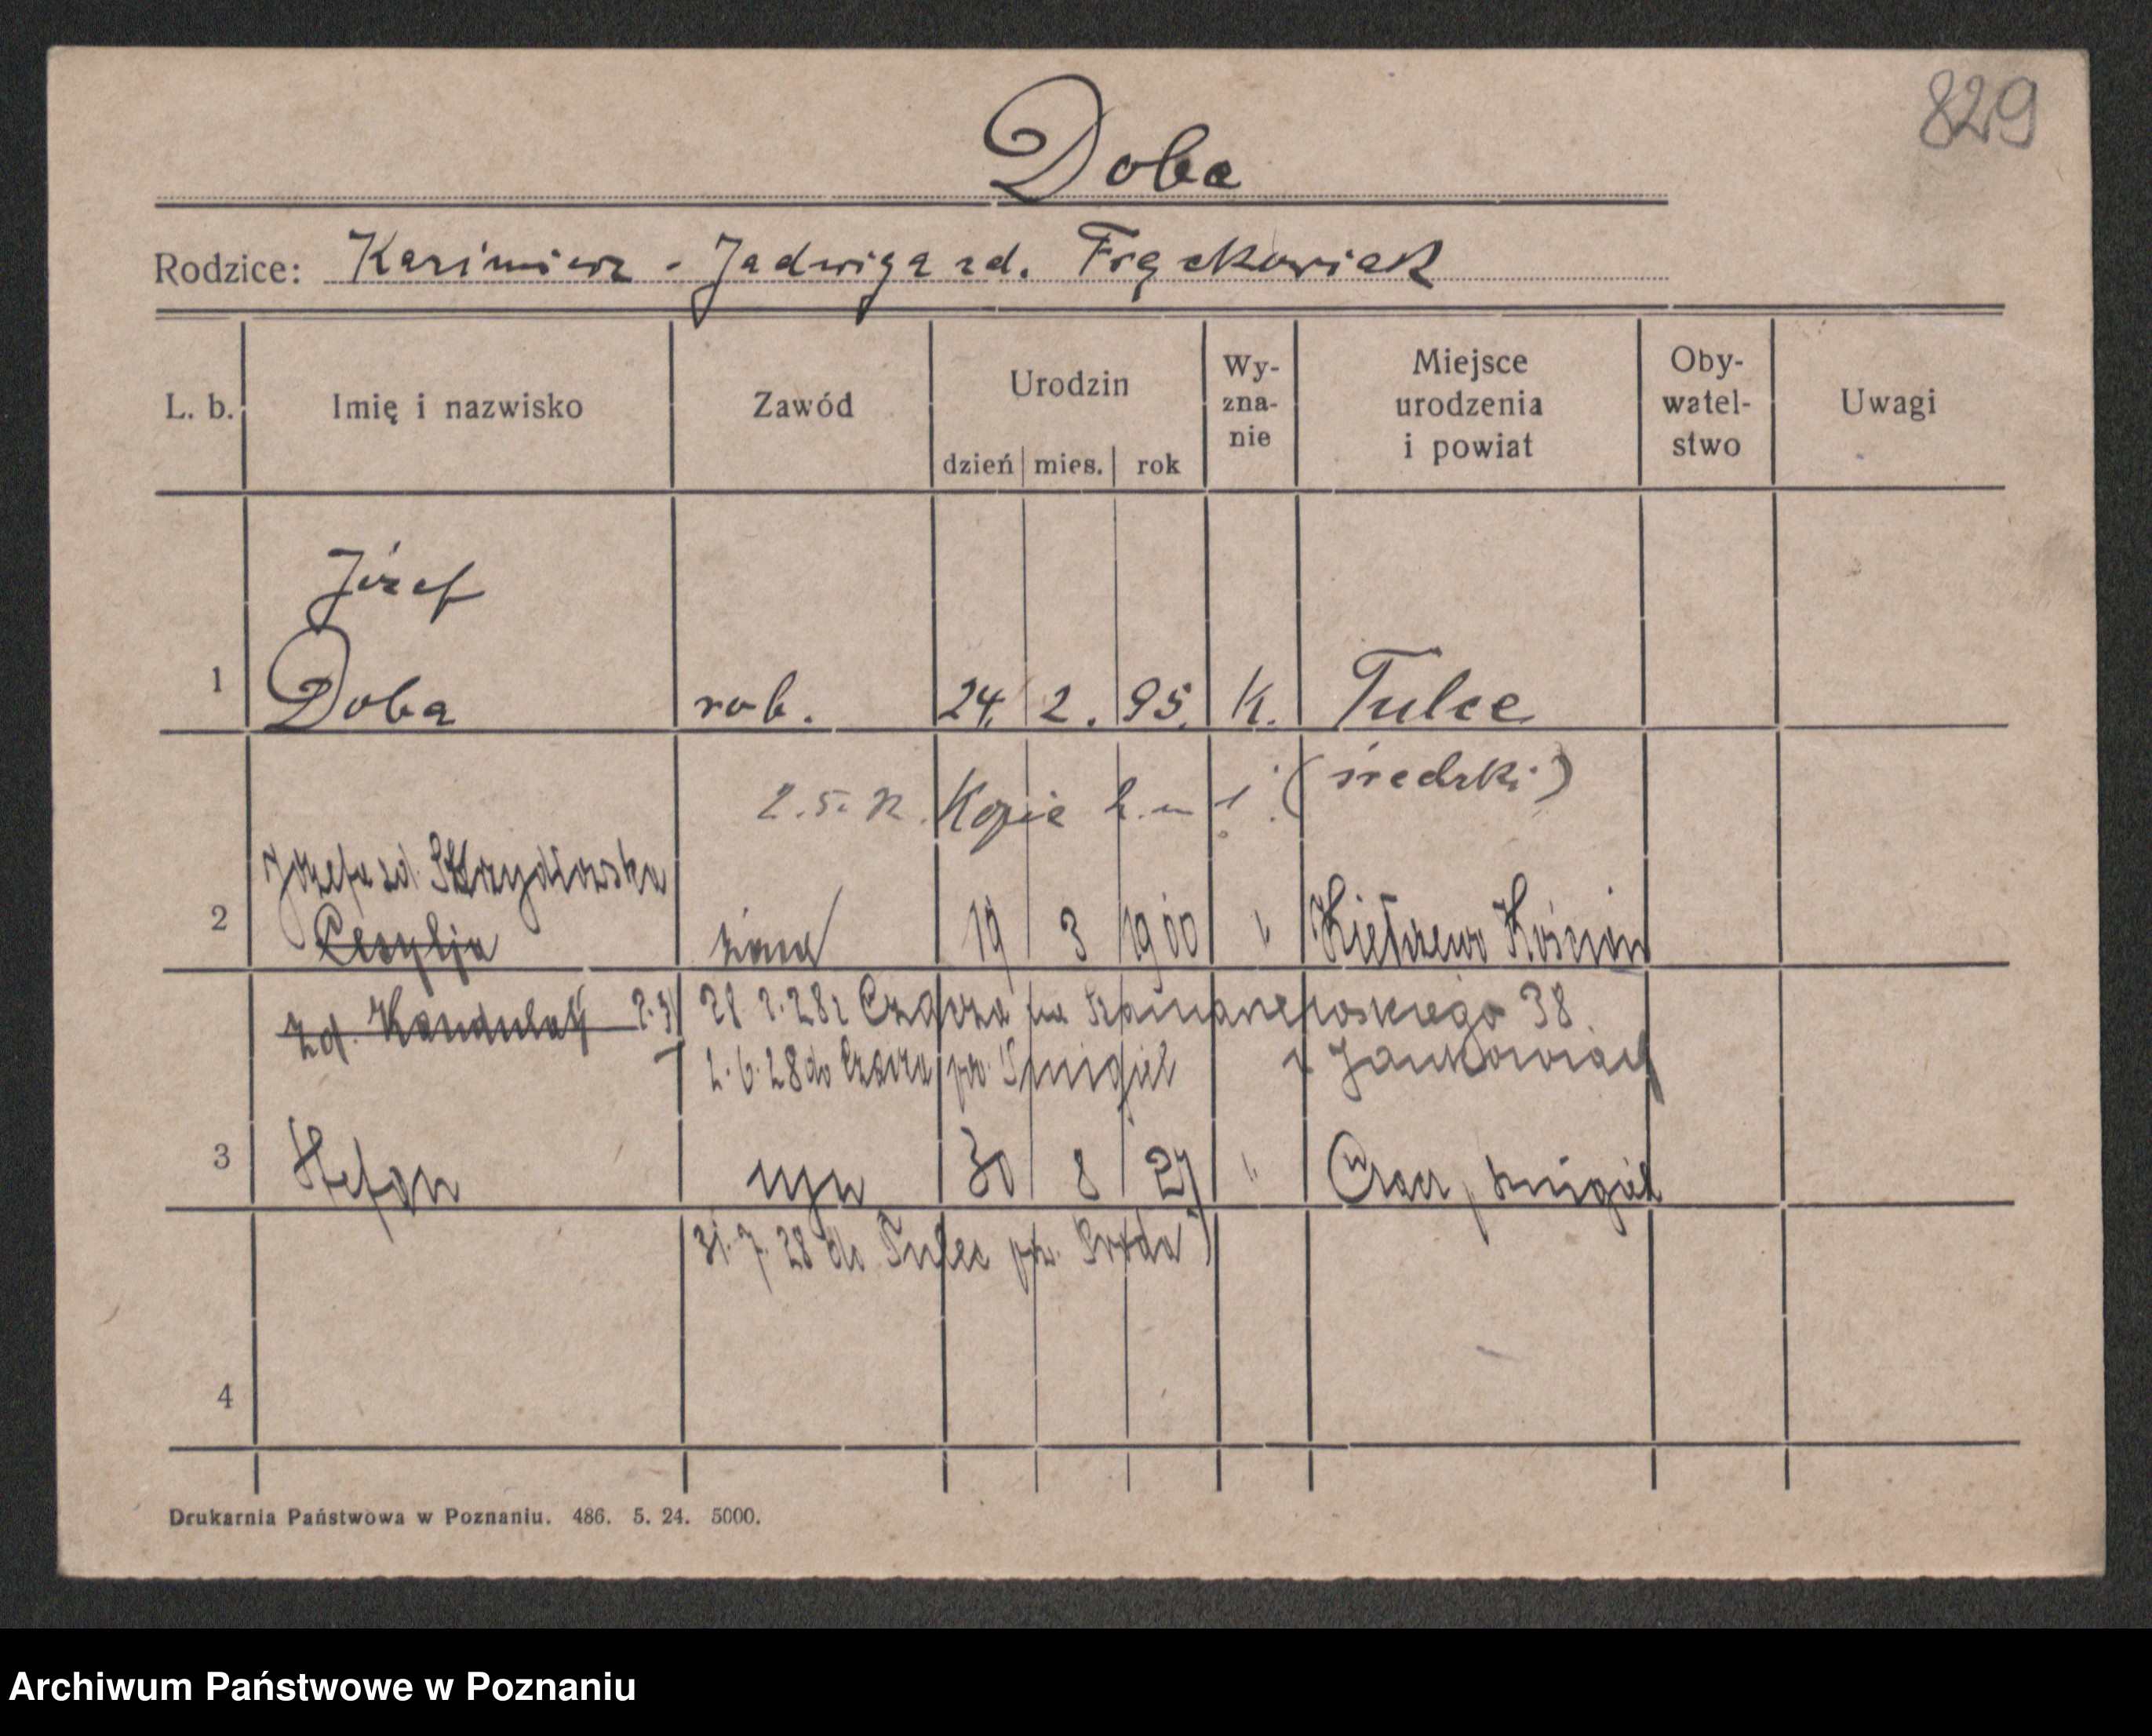 829
Doba
Rodzice: Kazimierz - Jadwiga zd. Frąckowiak
L. b. Imię i nazwisko Zawód Urodzin dzień mies. rok Wy-zna-nie Miejsce urodzenia i powiat Oby-watel-stwo Uwagi
Józef
1 Doba rob. 24. 2. 95. K. Tulce
(średzki)
2. 5. Kopie
Józefa zd. Skrzydlewska
2 Cecylja żona 19 3 1900 " Kiełczewo Kościan
zd. Kandulak 28 2. 28 z Czacza na Szamarzewskiego 38
2. 6. 28 do Czacza pow. Śmigiel z Jankowiak
3 Stefan syn 30 8 27 " Czacz, Śmigiel
31. 7. 28 do Tulec pow. Środa
4
Drukarnia Państwowa w Poznaniu. 486. 5. 24. 5000.
Archiwum Państwowe w Poznaniu